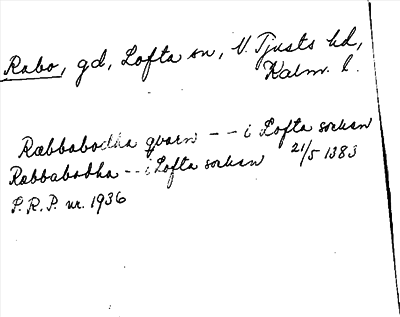 Rabo, gd, Lofta sn, N. Tjusts hd,
Kalm. l.
Rabbabodha qvarn - - i Lofta sokan
Rabbabodha - - i Lofta sokan 21/5 1383
S. R. P. nr. 1936